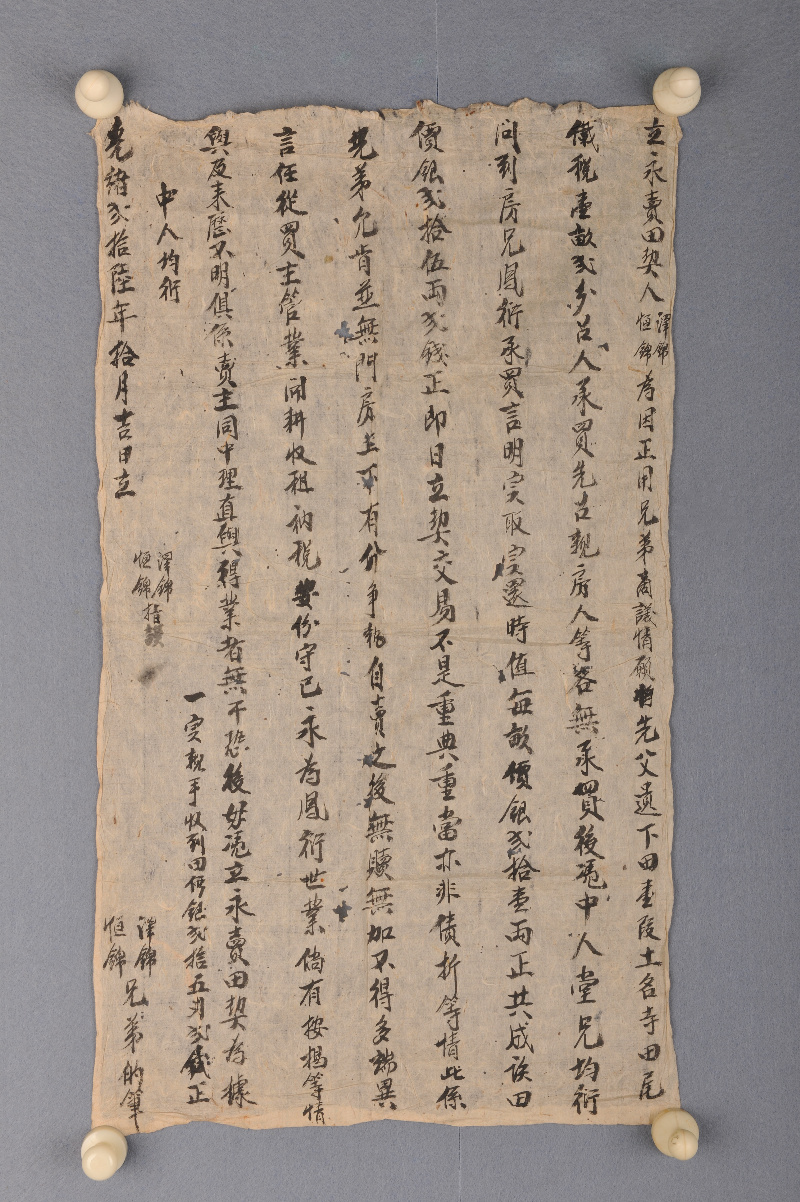 立永賣田契人澤錦恒錦為因正用兄弟商議情願將先父遺下田壹段土名寺田尾
儎稅壹畝弍分召人承買先召親房人等各無承買後凴中人堂兄均衍
问到房兄鳳衍承買言明实取实還時值每畝價銀弍拾壹両正共成該田
價銀弍拾伍両弍錢正即日立契交易不是重典重當亦非債折等情此係
兄弟允肯並無門房上下有分争執自賣之後無贖無加不得多端異
言任從買主管業開耕收租納稅安份守己永為鳳衍世業倘有按揭等情
與及來歷不明俱係賣主同中理直與得業者無干恐後好凴立永賣田契為據
一实親手收到田價銀弍拾五両弍錢正
中人均衍
澤錦恒錦指摸
光緒弍拾陸年拾月吉日立
澤錦恒錦兄弟的筆